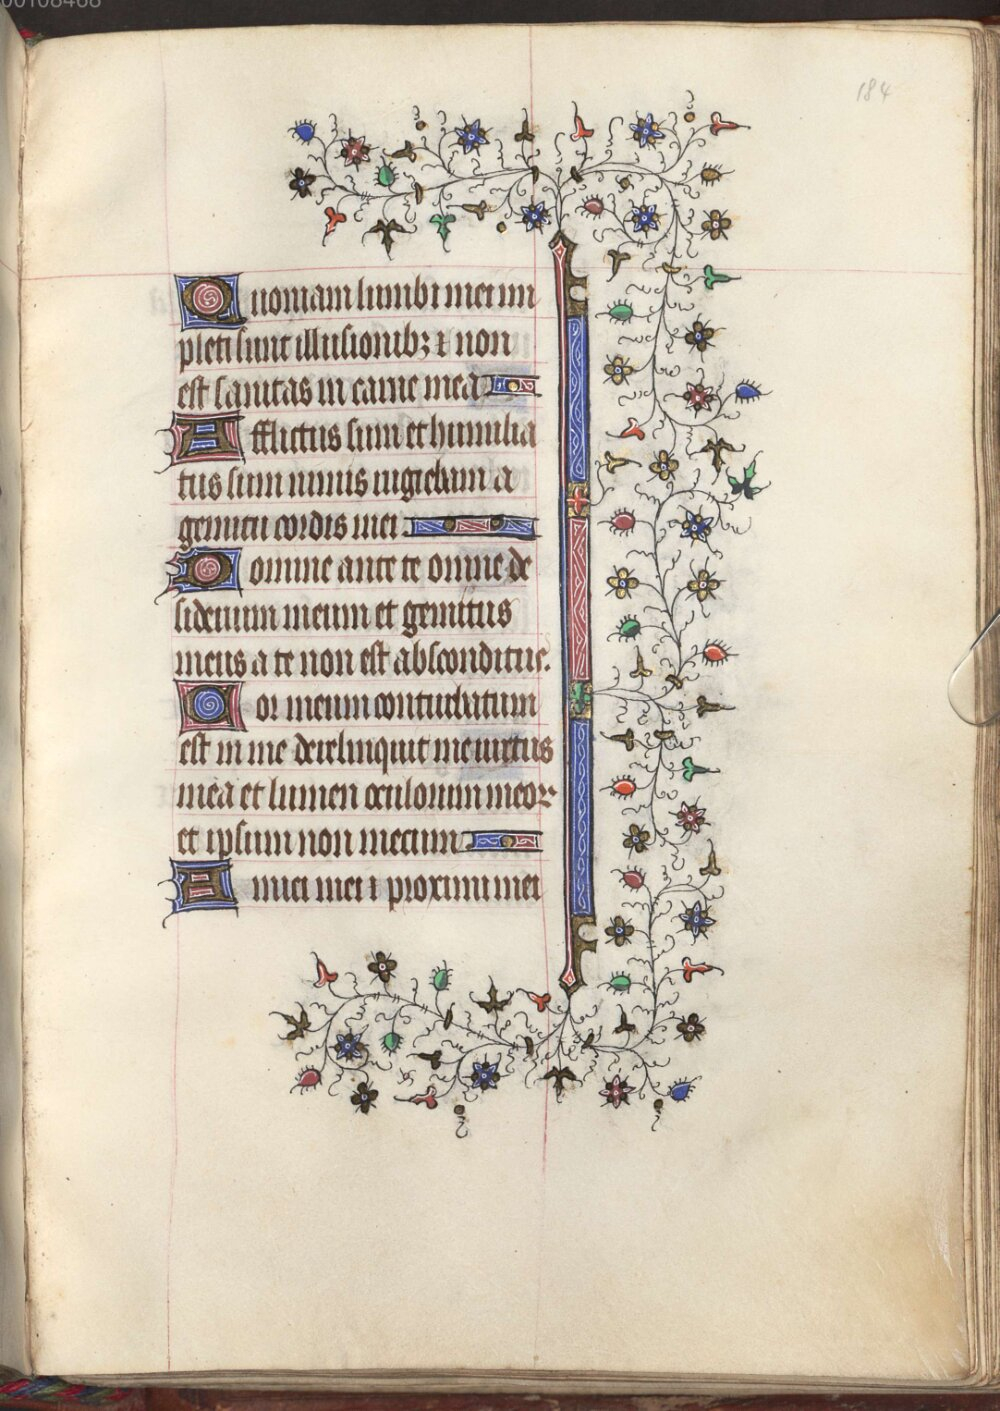 00108468
184
Quoniam lumbi mei im
pleti sunt illusionibꝫ ⁊ non
est sanitas in carne mea
Afflictus sum et humilia
tus sum nimis rugiebam a
gemitu cordis mei
Domine ante te omne de
siderium meum et gemitus
meus a te non est absconditus.
Cor meum conturbatum
est in me dereliquit me uirtus
mea et lumen oculorum meoꝝ
et ipsum non mecum
Amici mei ⁊ proximi mei